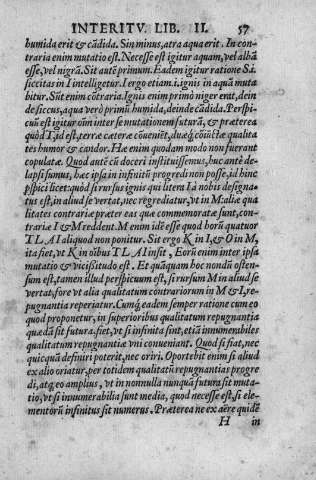 INTERITV. LIB. II. 57
humida erit & cādida. Sin minus, atra aqua erit. In con-
traria enim mutatio est. Necesse est igitur aquam, vel albā
esse, vel nigrā. Sit autē primum. Eadem igitur ratione S.
siccitas in I intelligetur. Ergo etiam. ignis in aquā muta
bitur. Sūt enim cōtraria. Ignis enim primò niger erat, dein
de siccus, aqua verò primū humida, deinde cādida. Perspi-
cuū est igitur oīm inter se mutationem futurā, & præterea
quòd T, id est, terræ cæteræ cōueniēt, duæq; cōiūctæ qualita
tes humor & candor. Hæ enim quodam modo non fuerant
copulatæ. Quod autē cū doceri instituissemus, huc antè de-
lapsi sumus, hæc ipsa in infinitū progredi non posse, id hinc
pspici licet: quòd si rursus ignis qui litera I à nobis designa
tus est, in aliud se vertat, nec regrediatur, vt in M: aliæ qua
litates contrariæ præter eas quæ commemoratæ sunt, con-
trariæ I & M reddent. M enim idē esse quod horū quatuor
T L A I aliquod non ponitur. Sit ergo K in I, & O in M,
ita fiet, vt K in oībus T L A I insit. Eorū enim inter ipsa
mutatio & vicissitudo est. Et quāquam hoc nondū osten-
sum est, tamen illud perspicuum est, si rursum M in aliud se
vertat, fore vt alia qualitatum contrariorum in M & I, re-
pugnantia reperiatur. Cumq́; eadem semper ratione cum eo
quod proponetur, in superioribus qualitatum repugnantia
quædā sit futura. fiet, vt si infinita sint, etiā innumerabiles
qualitatum repugnantiæ vni conueniant. Quod si fiat, nec
quicquā definiri poterit, nec oriri. Oportebit enim si aliud
ex alio oriatur, per totidem qualitatū repugnantias progre
di, atq; eo amplius, vt in nonnulla nunquā futura sit muta-
tio, vt si innumerabilia sunt media, quod necesse est, si ele-
mentorū infinitus sit numerus. Præterea ne ex aëre quidē
H in